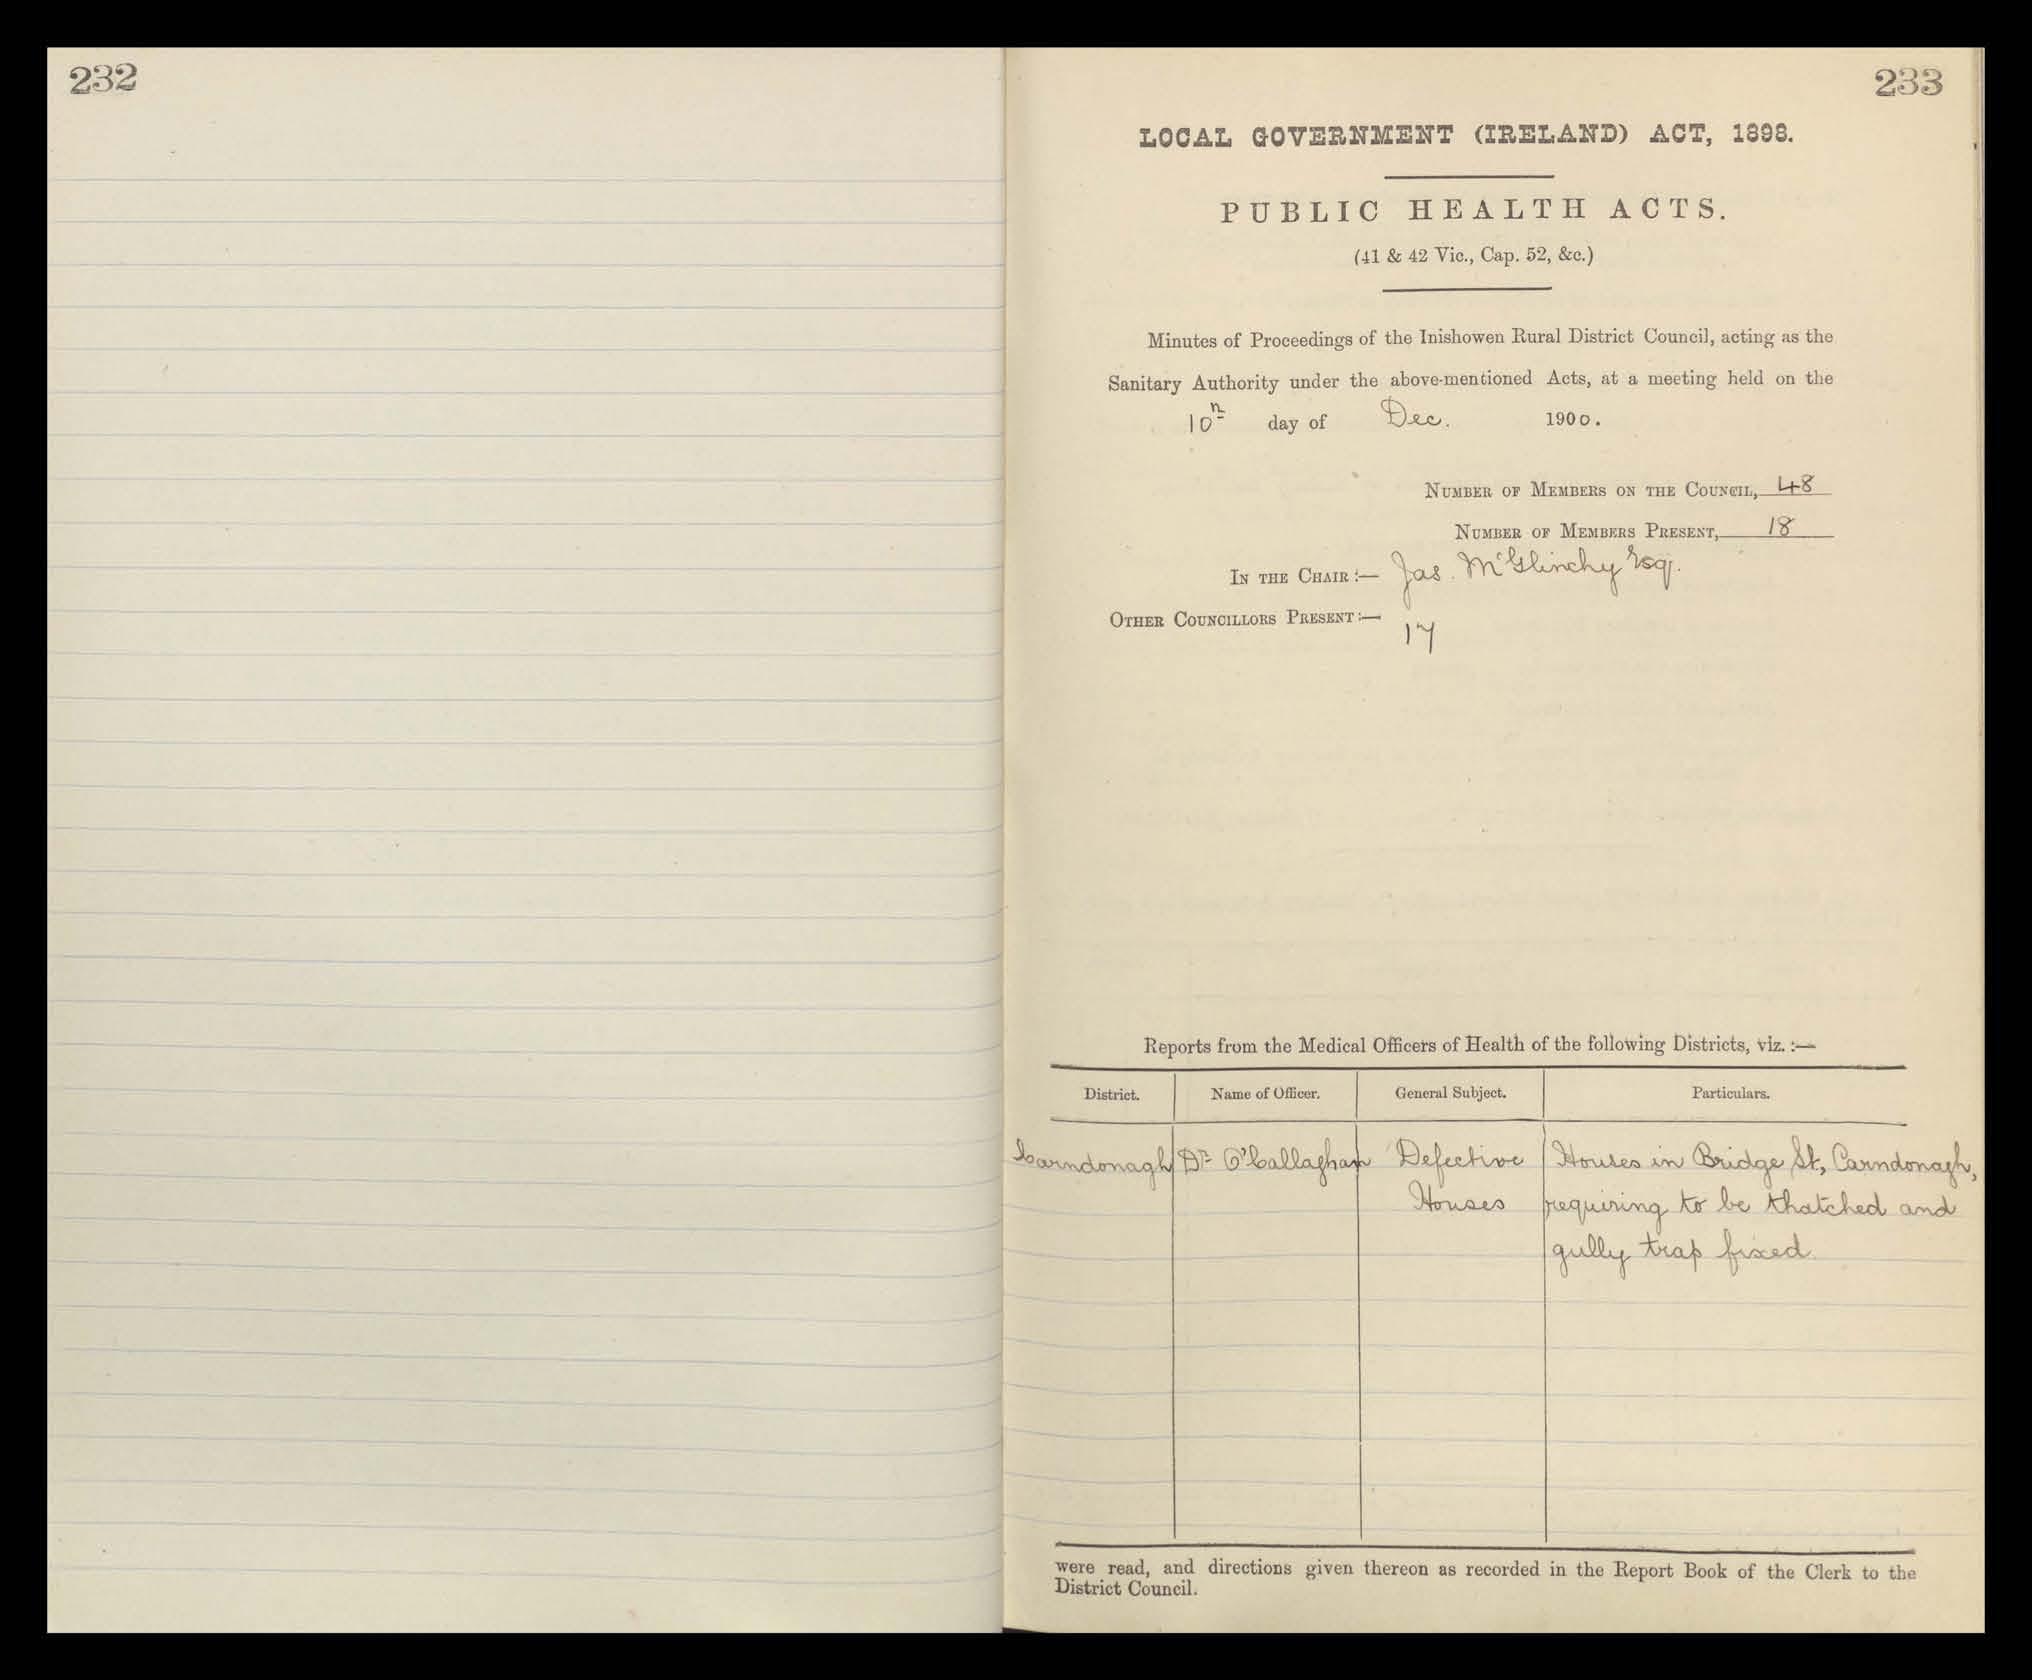 232
233
LOCAL GOVERNMENT (IRELAND) ACT, 1898.
PUBLIC HEALTH ACTS.
(41 & 42 Vic., Cap. 52, &c.)
Minutes of Proceedings of the Inishowen Rural District Council, acting as the
Sanitary Authority under the above-mentioned Acts, at a meeting held on the
10th day of Dec. 1900.
NUMBER OF MEMBERS ON THE COUNCIL, 48
NUMBER OF MEMBERS PRESENT, 18
IN THE CHAIR:— Jas. McGlinchy Esq.
OTHER COUNCILLORS PRESENT:—
17
Reports from the Medical Officers of Health of the following Districts, viz.:—
District. Name of Officer. General Subject. Particulars.
Carndonagh Dr O'Callaghan Defective Houses in Bridge St, Carndonagh,
Houses requiring to be thatched and
gully trap fixed.
were read, and directions given thereon as recorded in the Report Book of the Clerk to the
District Council.